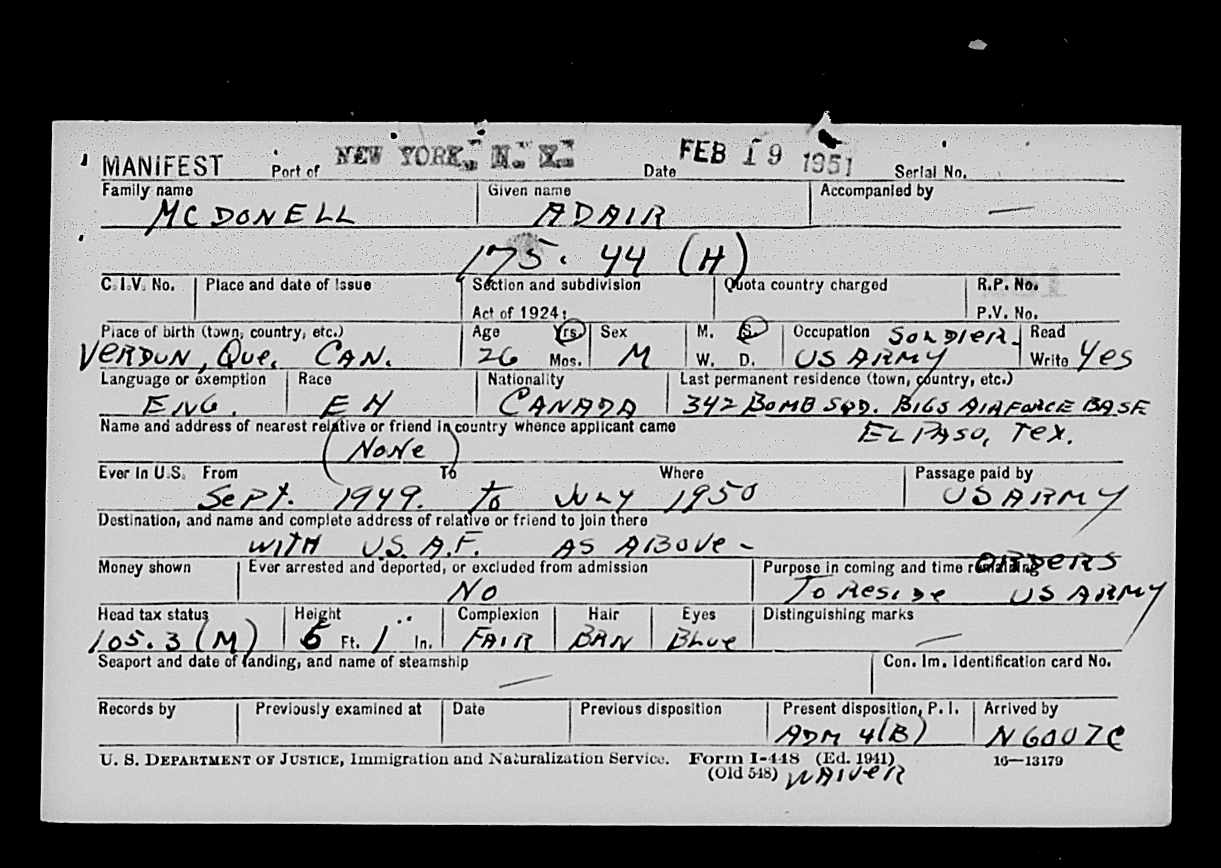 MANIFEST Port of NEW YORK, N. Y. Date FEB 19 1951 Serial No.
Family name Given name Accompanied by
MCDONELL ADAIR —
175.44 (H)
C.I.V. No. Place and date of issue Section and subdivision Quota country charged R.P. No.
Act of 1924: P.V. No.
Place of birth (town, country, etc.) Age Yrs. Sex M. S. Occupation SOLDIER Read
VERDUN, QUE, CAN. 26 Mos. M W. D. US ARMY Write Yes
Language or exemption Race Nationality Last permanent residence (town, country, etc.)
ENG. CANADA 342 BOMB SQD. BIGS AIRFORCE BASE
Name and address of nearest relative or friend in country whence applicant came EL PASO, TEX.
(NONE)
Ever in U.S. From To Where Passage paid by
SEPT. 1949. TO JULY 1950 US ARMY
Destination, and name and complete address of relative or friend to join there
WITH U.S. A.F. AS ABOVE -
Money shown Ever arrested and deported, or excluded from admission Purpose in coming and time remaining ORDERS
NO TO RESIDE US ARMY
Head tax status Height Complexion Hair Eyes Distinguishing marks
105.3 (M) 6 Ft. 1 In. FAIR BRN BLUE —
Seaport and date of landing, and name of steamship Con. Im. Identification card No.
—
Records by Previously examined at Date Previous disposition Present disposition, P. I. Arrived by
ADM 4(B) N6007C
U. S. DEPARTMENT OF JUSTICE, Immigration and Naturalization Service. Form I-448 (Ed. 1941) 16—13179
(Old 548) WAIVER